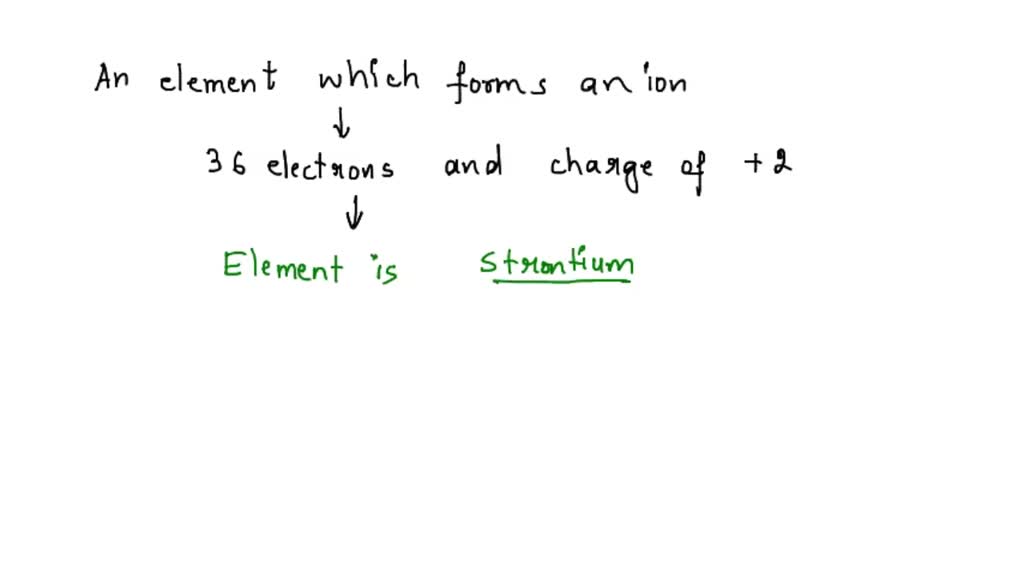 An element which forms an ion
↓
36 electrons and charge of +2
↓
Element is Strontium